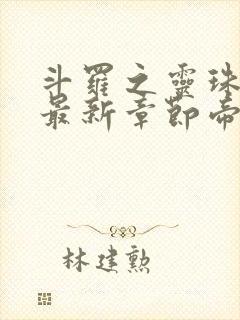 斗羅之靈珠
最新章節帝
林建勲